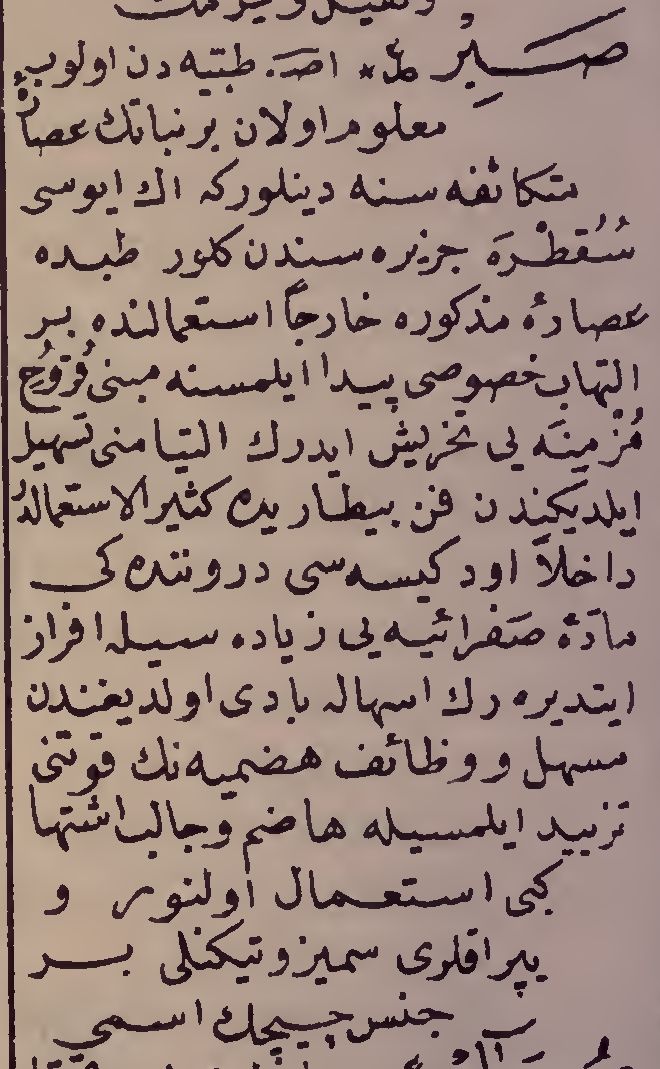 صَبِرْ ع* اصـ. طبيه دن اولوب
معلوم اولان بر نباتك عصارۀ
متكاثفه سنه دينلوركه اك ايوسى
سُقُطْرَه جزيره سندن كلور طبده
عصارۀ مذكوره خارجاً استعمالنده بر
التهاب خصوصى پيدا ايلمسنه مبنى قُرُوحِ
مُزْمِنَه يى تخريش ايدرك التيامنى تسهيل
ايلديكندن فن بيطاريده كثيرالاستعمالدُر
داخلاً اود كيسه سى دروننده كى
مادّۀ صفرائيه يى زياده سيله افراز
ايتديره رك اسهاله بادى اولديغندن
مسهل و وظائف هضميه نك قوتنى
تزييد ايلمسيله هاضم و جالب اشتها
كبى استعمال اولنور و
يپراقلرى سميز و تيكنلى بر
جنس چيچك اسمى